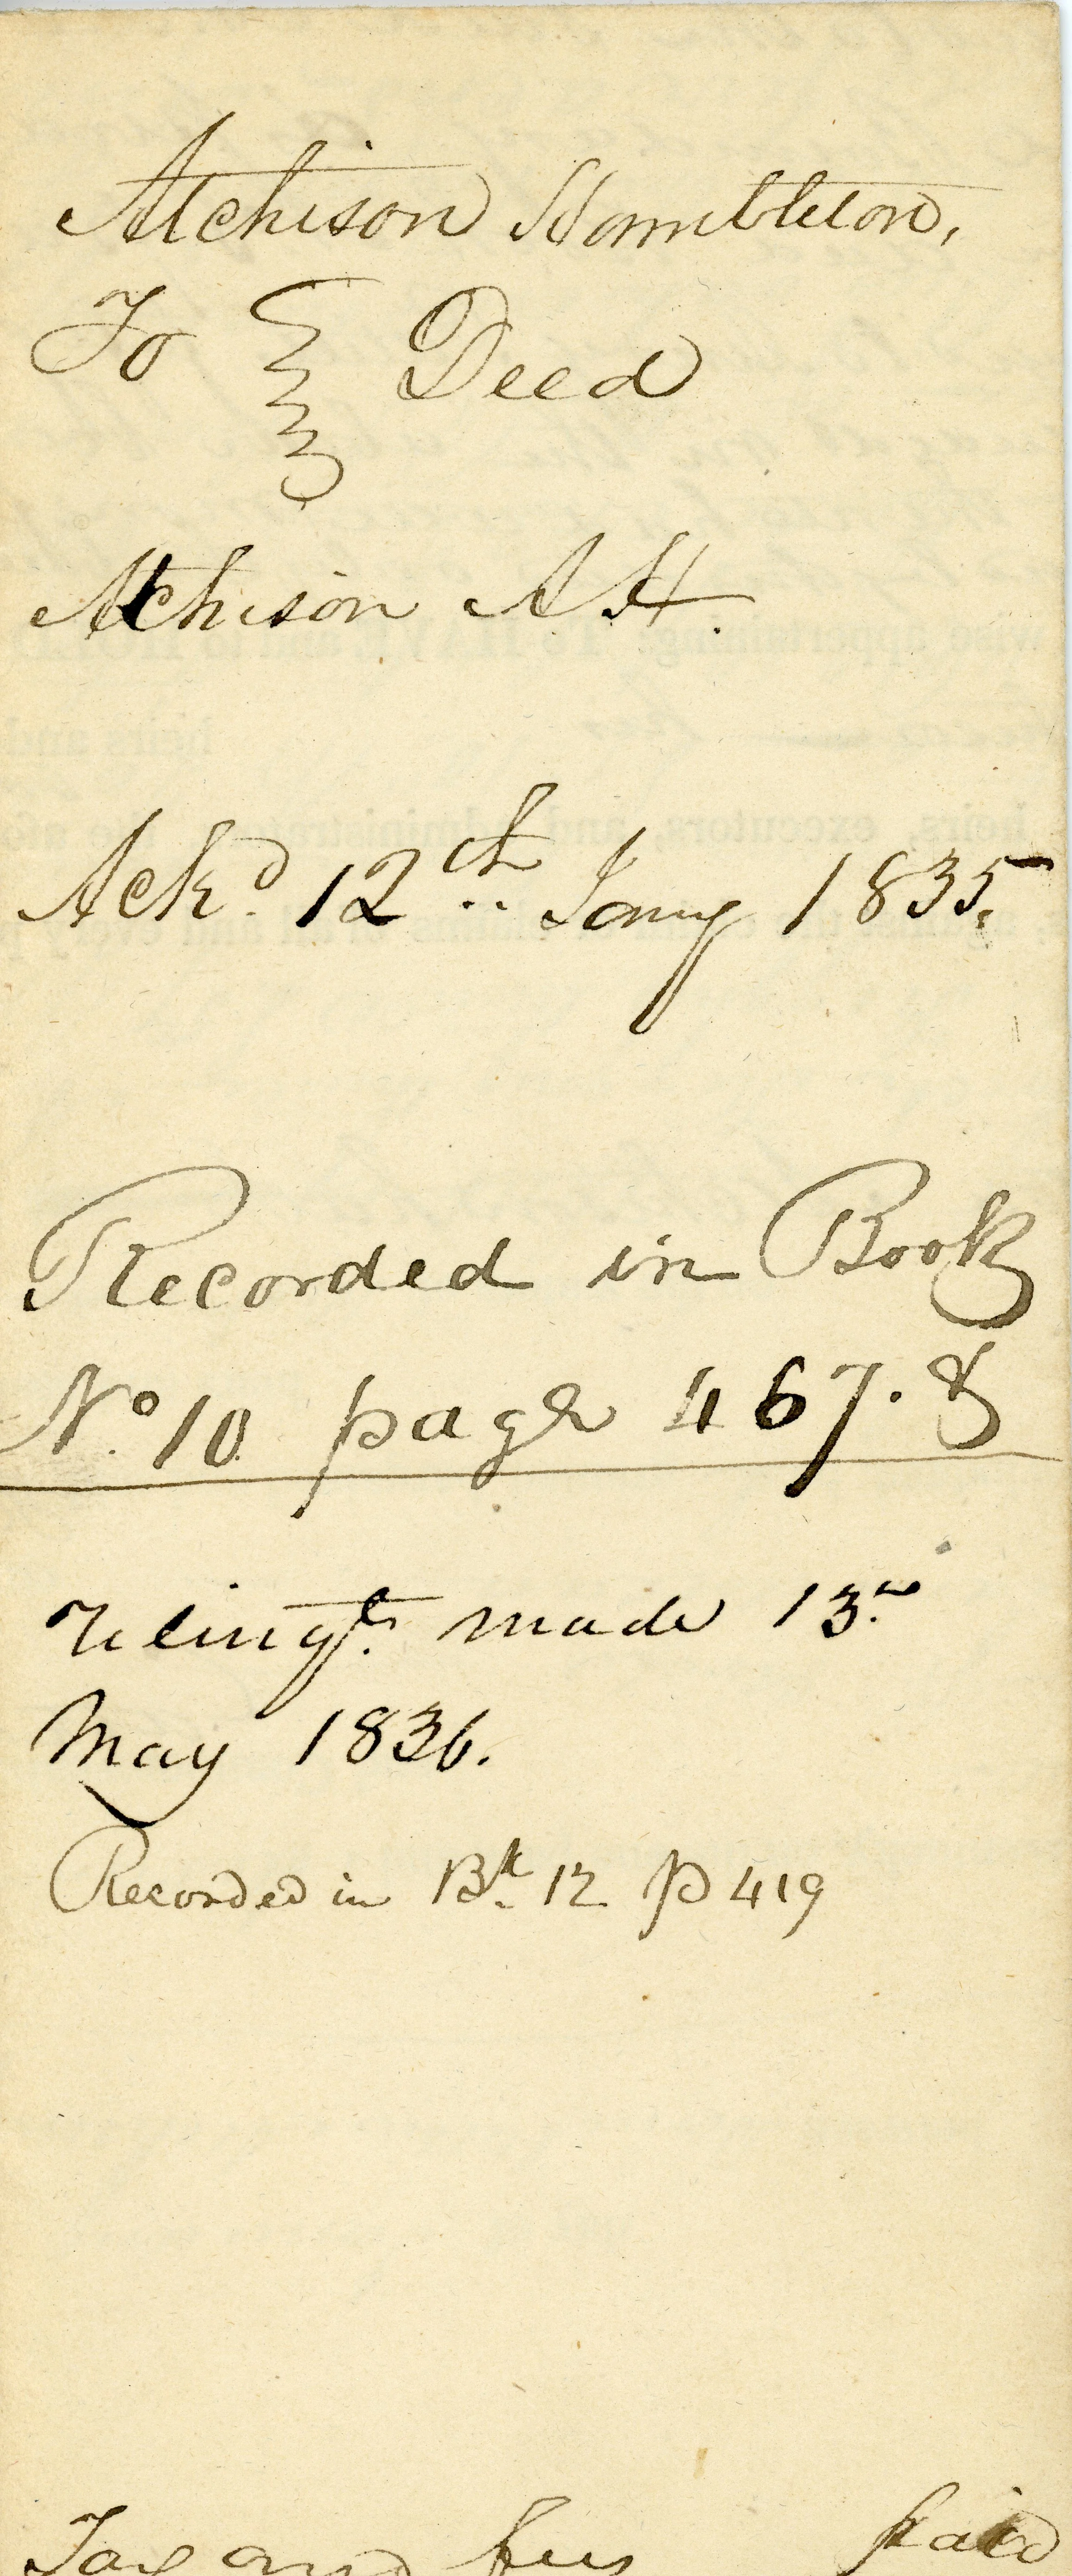 Atchison Hambleton,
To Deed
Atchison A H.
Ackd. 12th Jany 1835.
Recorded in Book
No. 10 page 467. &
Relingt. made 13th
May 1836.
Recorded in Bk. 12 p 419
Tax and fees paid